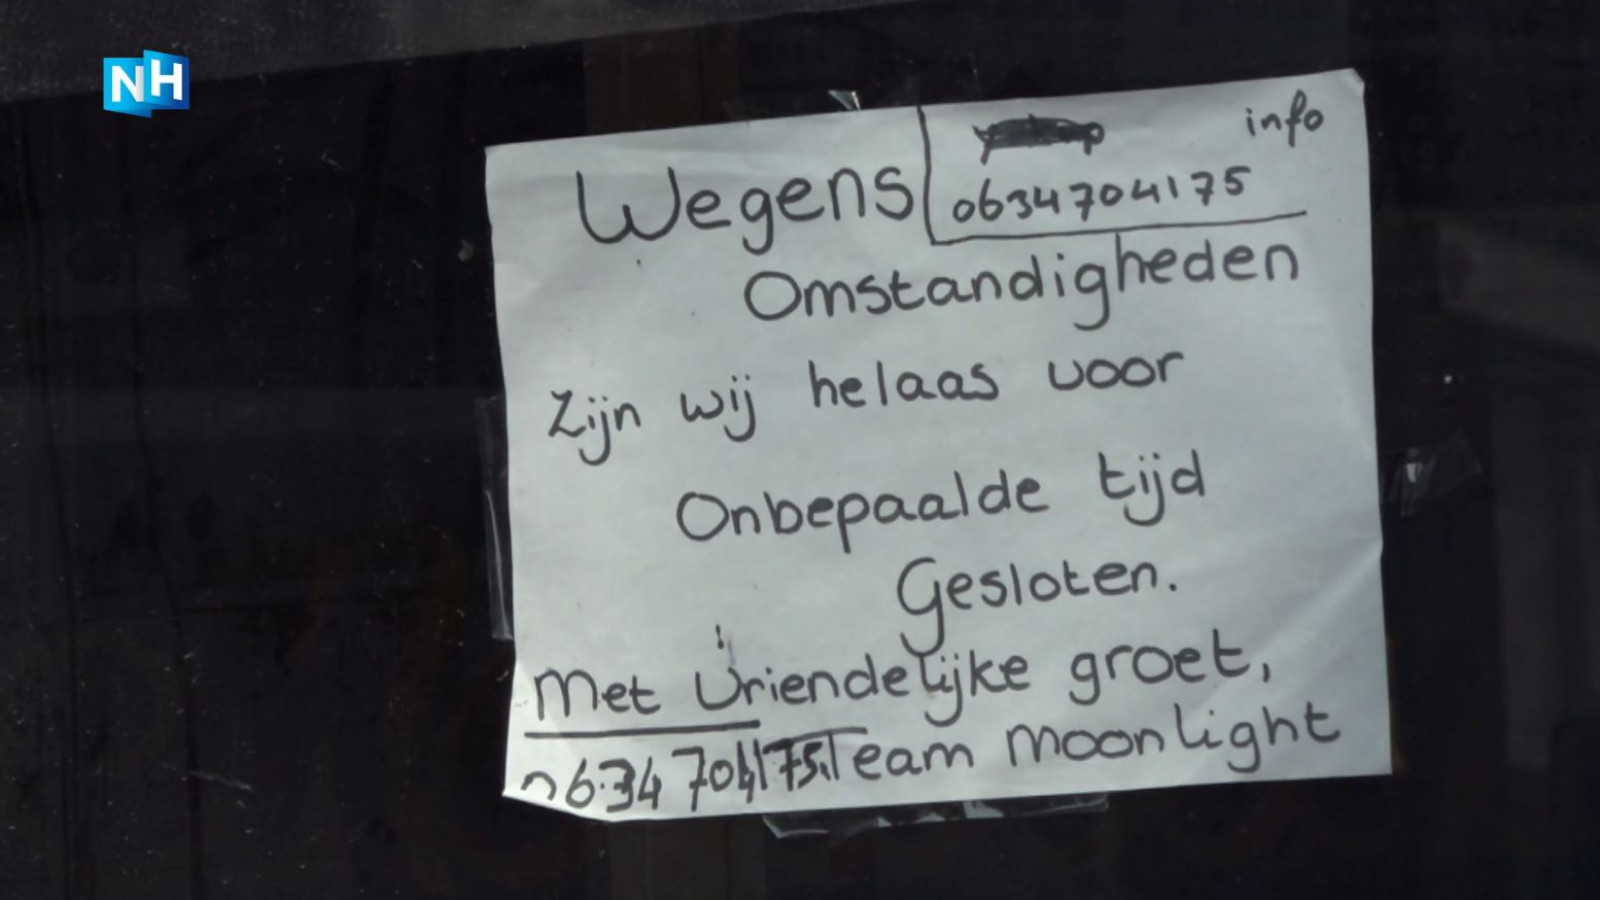 NH
info
0634704175
Wegens
Omstandigheden
Zijn wij helaas voor
Onbepaalde tijd
Gesloten.
Met Vriendelijke groet,
0634704175 Team Moonlight